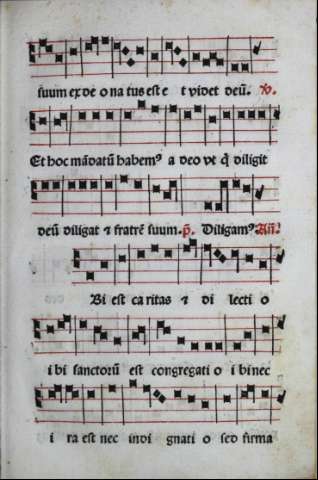 suum ex deo natus est et videt deū. V.
Et hoc mādatū habemꝰ a deo vt q̄ diligit
deū diligat ⁊ fratrē suum. p̄. Diligamꝰ. Añ.
Bi est caritas ⁊ dilectio
ibi sanctorū est congregatio ibi nec
ira est nec indignatio sed firma